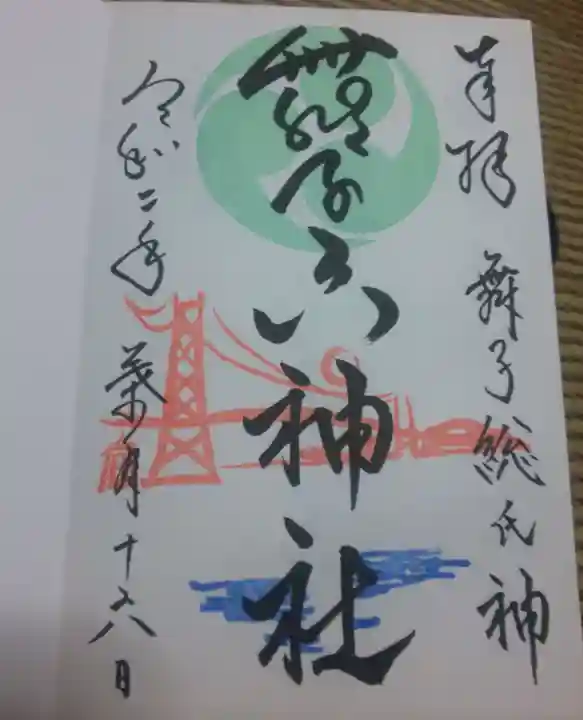 奉拝
舞子総氏神
舞子六神社
令和二年
葉月十六日